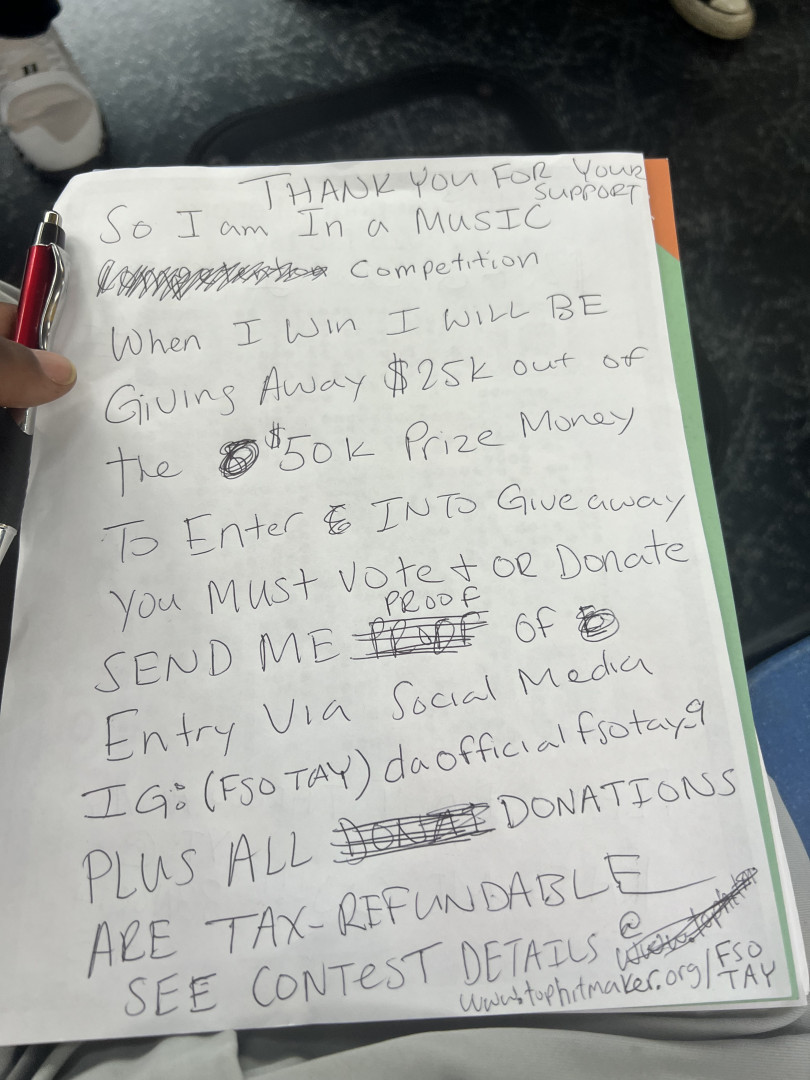 THANK YOU FOR YOUR
SUPPORT
So I am In a MUSIC
Competition
When I Win I WILL BE
Giving Away $25K out of
the $50K Prize Money
To Enter INTO Give away
You Must Vote + OR Donate
SEND ME PROOF OF
Entry Via Social Media
IG: (FSO TAY) daofficialfsotay_9
PLUS ALL DONATIONS
ARE TAX-REFUNDABLE
SEE CONTEST DETAILS @
www.tophitmaker.org/FSO
TAY